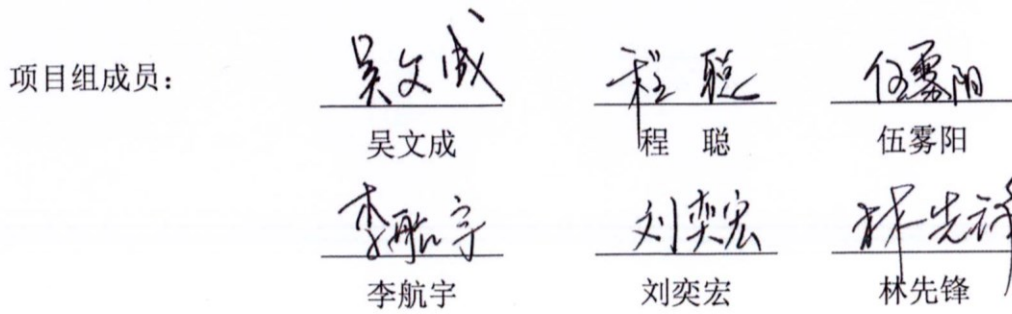 项目组成员: 吴文成 程聪 伍雾阳
吴文成 程 聪 伍雾阳
李航宇 刘奕宏 林先锋
李航宇 刘奕宏 林先锋